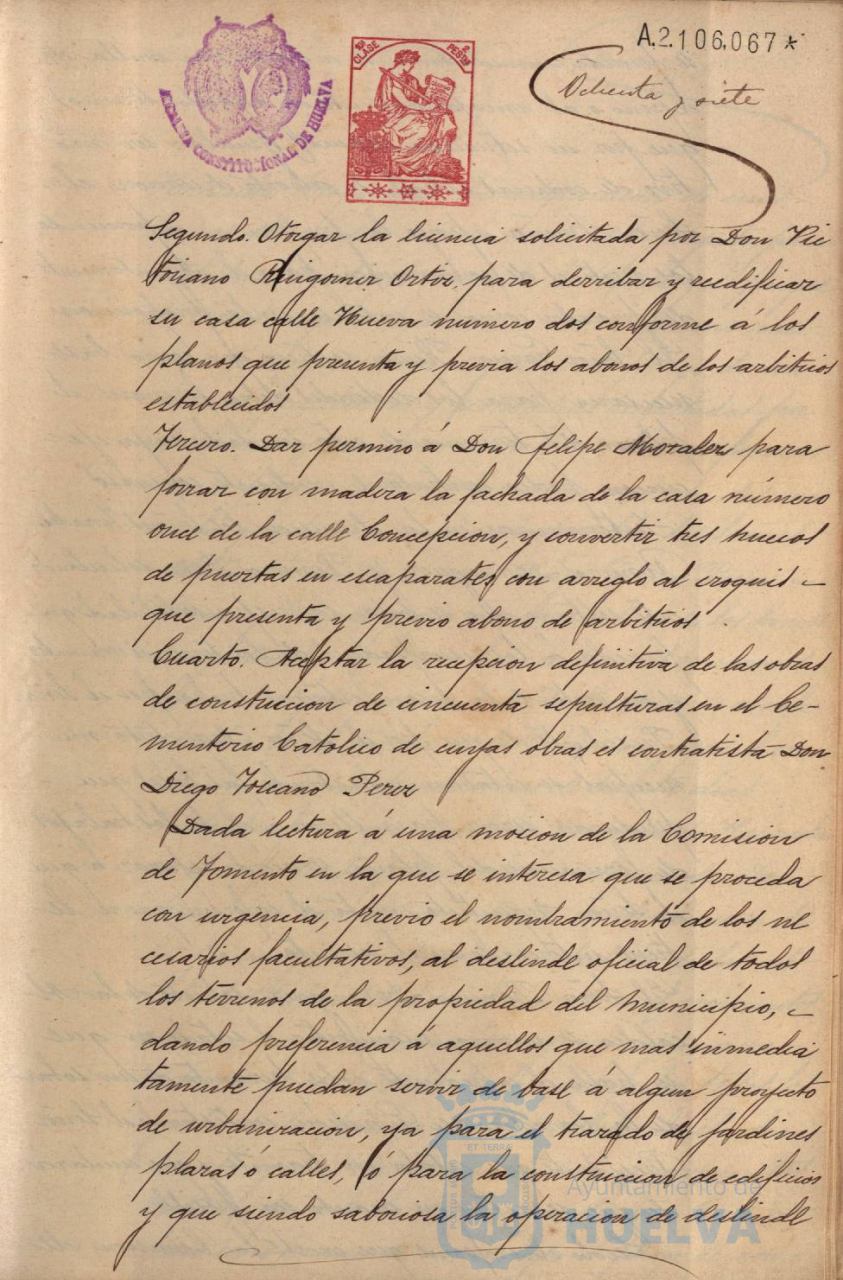 A.2.106,067*
Ochenta y siete
ALCALDIA CONSTITUCIONAL DE HUELVA
CLASE
PESTAS
Segundo. Otorgar la licencia solicitada por Don Vic
toriano Ruigomir Ortiz. para derribar y reedificar
su casa calle Nueva numero dos conforme á los
planos que presenta y previa los abonos de los arbitrios
establecidos
Tercero. Dar permiso á Don Felipe Morales para
forrar con madera la fachada de la casa número
once de la calle Concepcion, y convertir tres huecos
de puertas en escaparates con arreglo al croquis -
que presenta y previo abono de arbitrios.
Cuarto. Aceptar la recepcion definitiva de las obras
de construccion de cincuenta sepulturas en el Ce-
menterio Catolico de cuyas obras es contratista Don
Diego Toscano Perez
Dada lectura á una mocion de la Comision
de Fomento en la que se interesa que se proceda
con urgencia, previo el nombramiento de los ne
cesarios facultativos, al deslinde oficial de todos
los terrenos de la propiedad del Municipio, -
dando preferencia á aquellos que mas inmedia
tamente puedan servir de base á algun proyecto
de urbanizacion, ya para el trazado de jardines
plazas ó calles, ó para la construccion de edificios
y que siendo laboriosa la operacion de deslinde
Ayuntamiento de
HUELVA